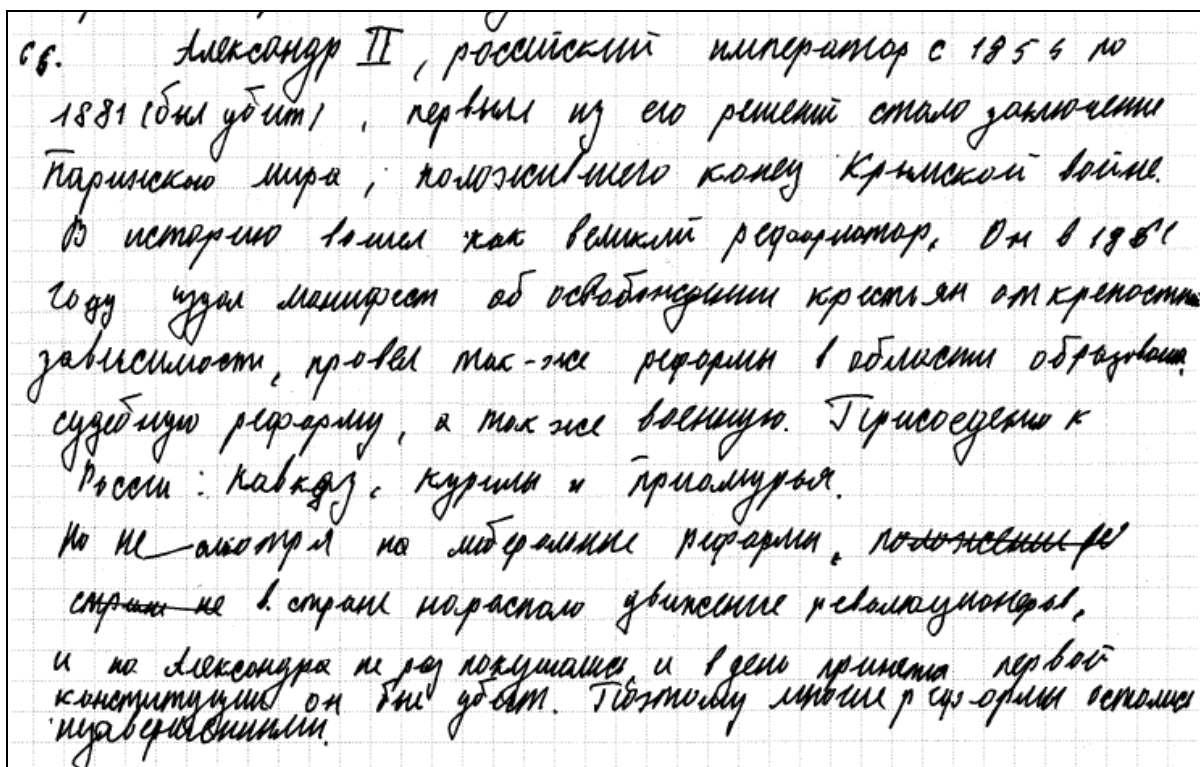 С6. Александр II, российский император с 1855 по
1881 (был убит), первым из его решений стало заключение
Парижского мира, положившего конец Крымской войне.
В историю вошел как великий реформатор. Он в 1861
году издал манифест об освобождении крестьян от крепостной
зависимости, провел так-же реформы в области образования,
судебную реформу, а так же военную. Присоеденил к
России: Кавказ, Курилы и Приамурья.
Но не смотря на либеральные реформы, положение ре
стране не в стране нарастало движение революционеров,
и на Александра не раз покушались и в день принятия первой
конституции он был убит. Поэтому многие реформы остались
незавершенными.